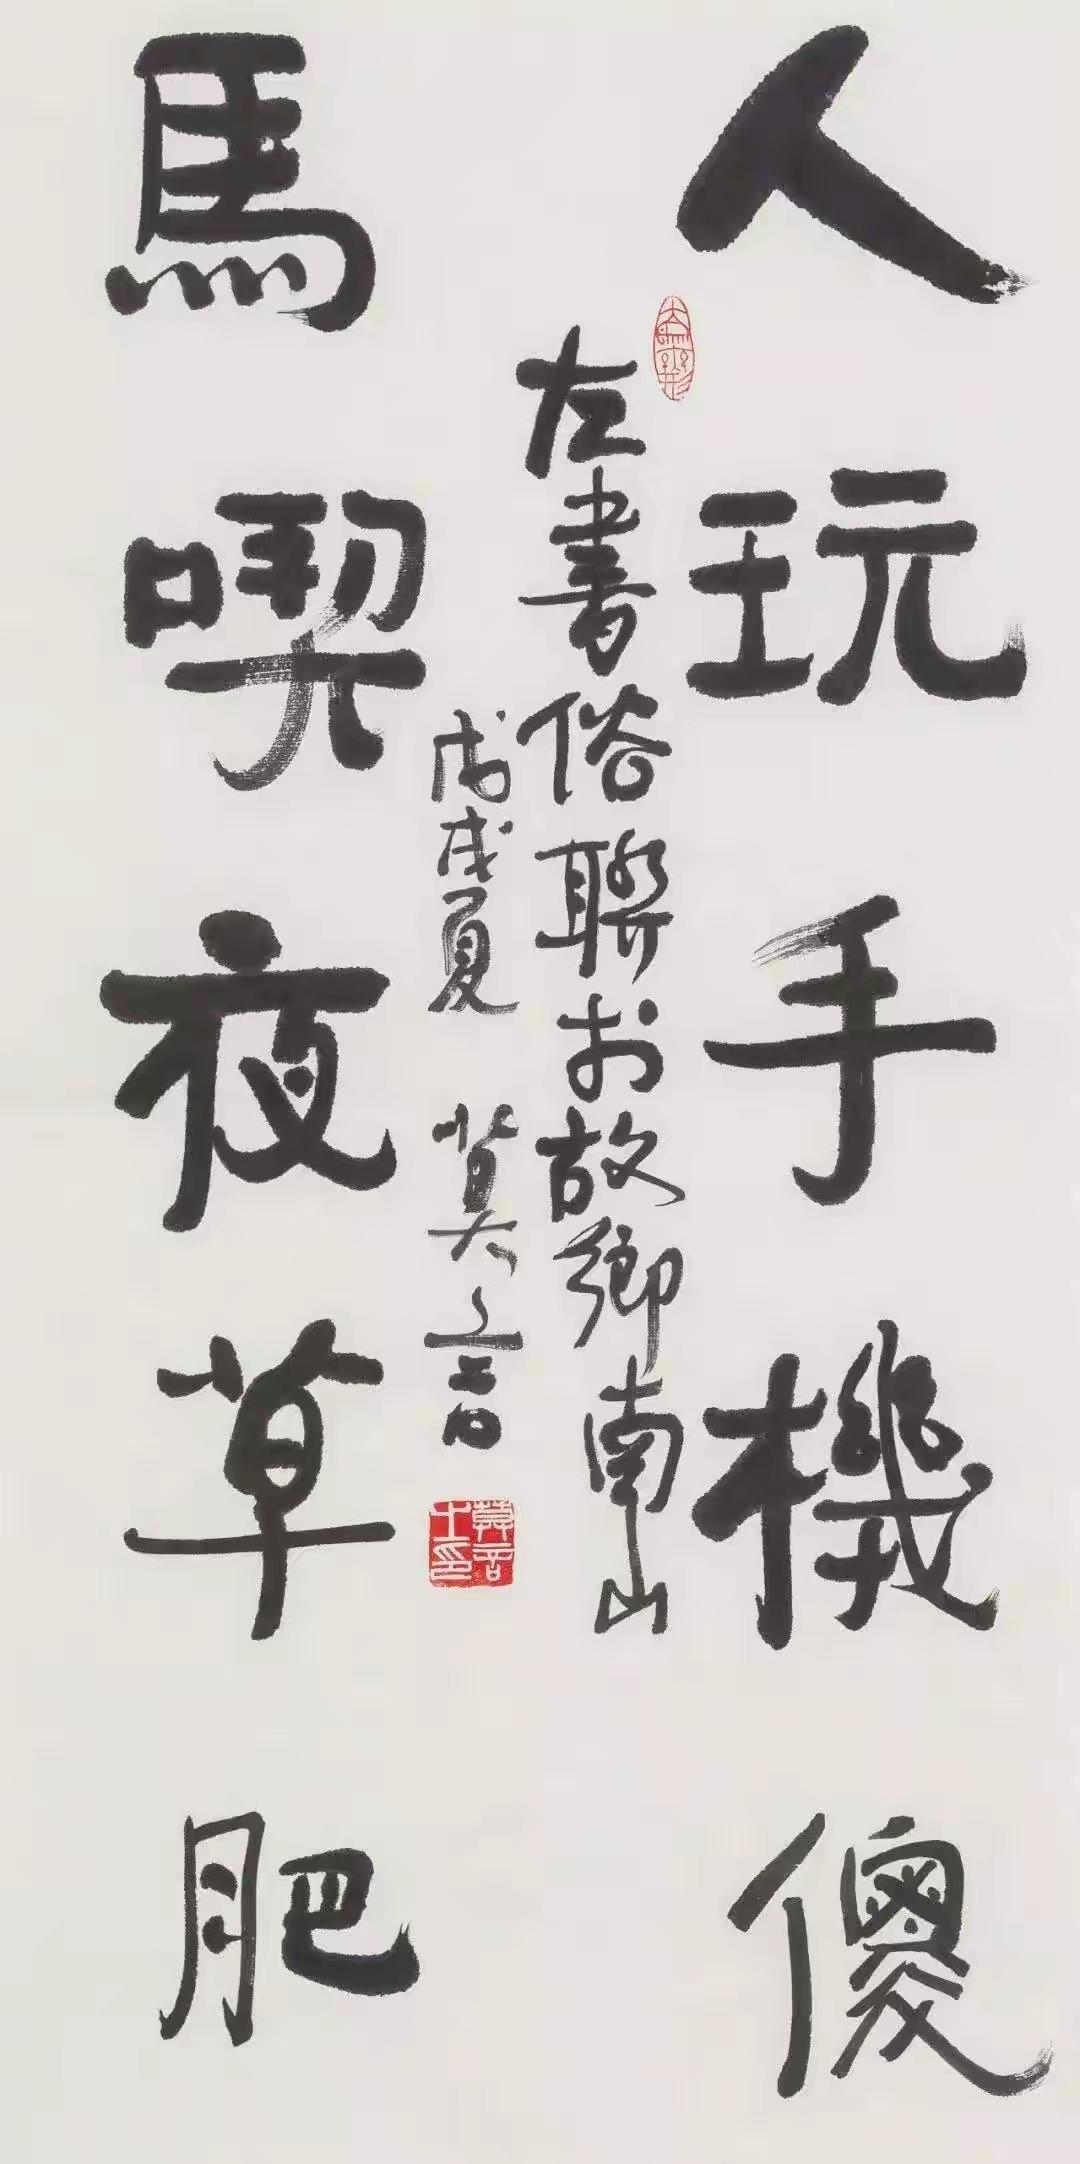 人玩手機傻
左書俗聯於故鄉南山
戊戌夏 莫言
莫言
馬喫夜草肥